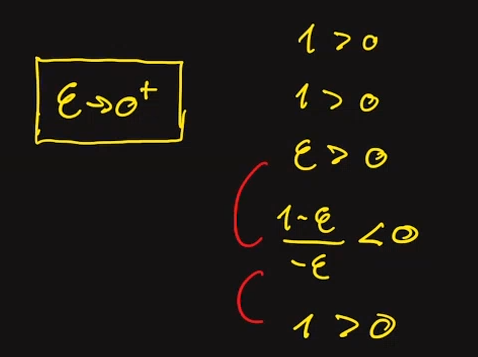 ε→0⁺
1 > 0
1 > 0
ε > 0
(1-ε)/(-ε) < 0
1 > 0